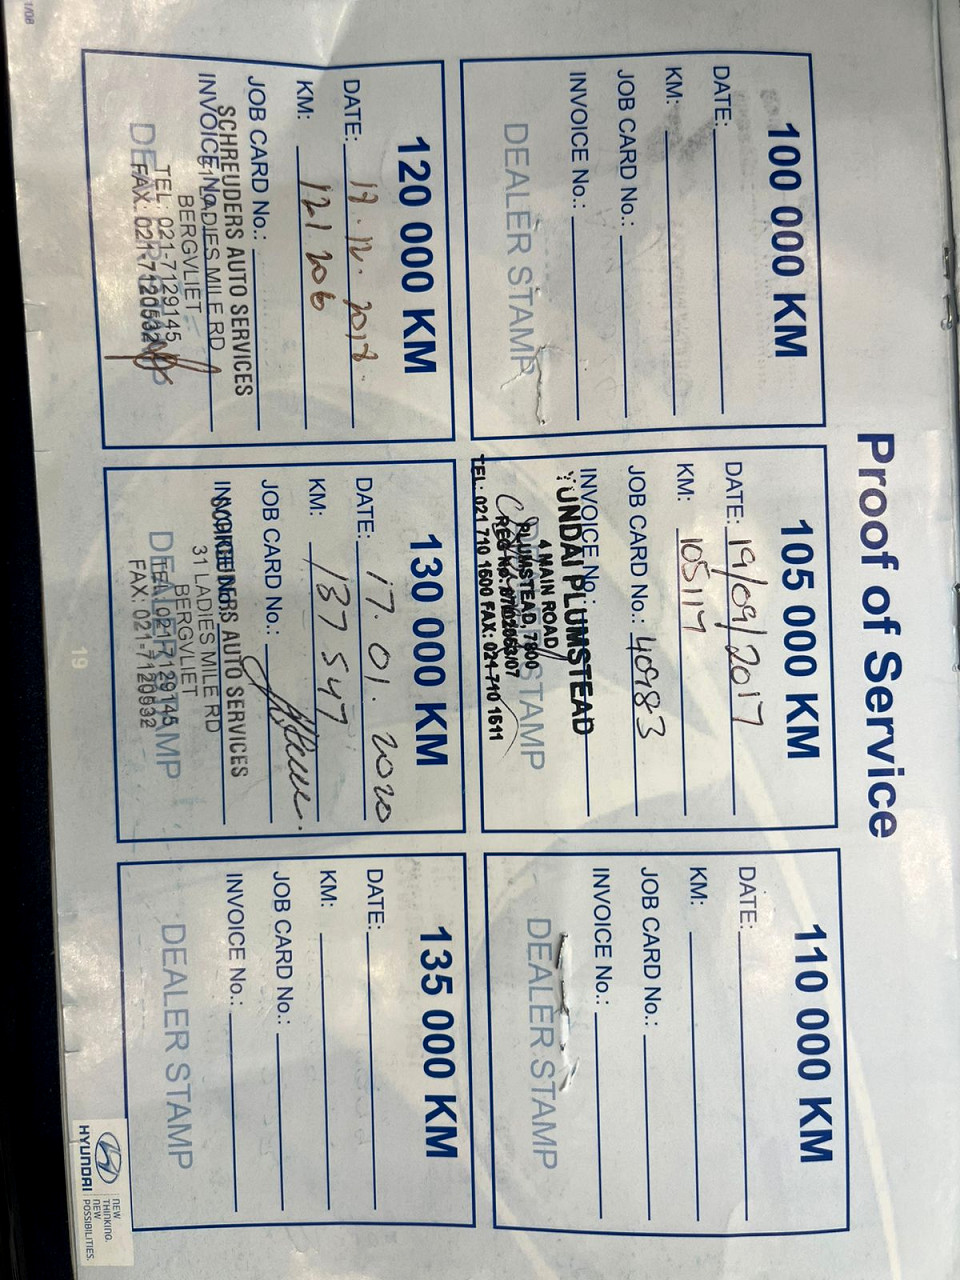 Proof of Service
100 000 KM
DATE:
KM:
JOB CARD No.:
INVOICE No.:
DEALER STAMP
105 000 KM
DATE: 19/09/2017
KM: 105117
JOB CARD No.: 40983
INVOICE No.:
YUNDAI PLUMSTEAD
4 MAIN ROAD
PLUMSTEAD, 7800
TEL: 021 710 1600 FAX: 021 710 1611
DEALER STAMP
110 000 KM
DATE:
KM:
JOB CARD No.:
INVOICE No.:
DEALER STAMP
120 000 KM
DATE: 19.12.2018.
KM: 121 206
JOB CARD No.:
SCHREUDERS AUTO SERVICES
INVOICE No.:
LADIES MILE RD
BERGVLIET
TEL: 021-7129145
FAX: 021-7120932
DEALER STAMP
130 000 KM
DATE: 17.01.2020
KM: 137 547
JOB CARD No.:
INVOICE No.:
SCHREUDERS AUTO SERVICES
31 LADIES MILE RD
BERGVLIET
TEL: 021-7129145
FAX: 021-7120932
DEALER STAMP
135 000 KM
DATE:
KM:
JOB CARD No.:
INVOICE No.:
DEALER STAMP
19
HYUNDAI
NEW
THINKING.
NEW
POSSIBILITIES.
1/08